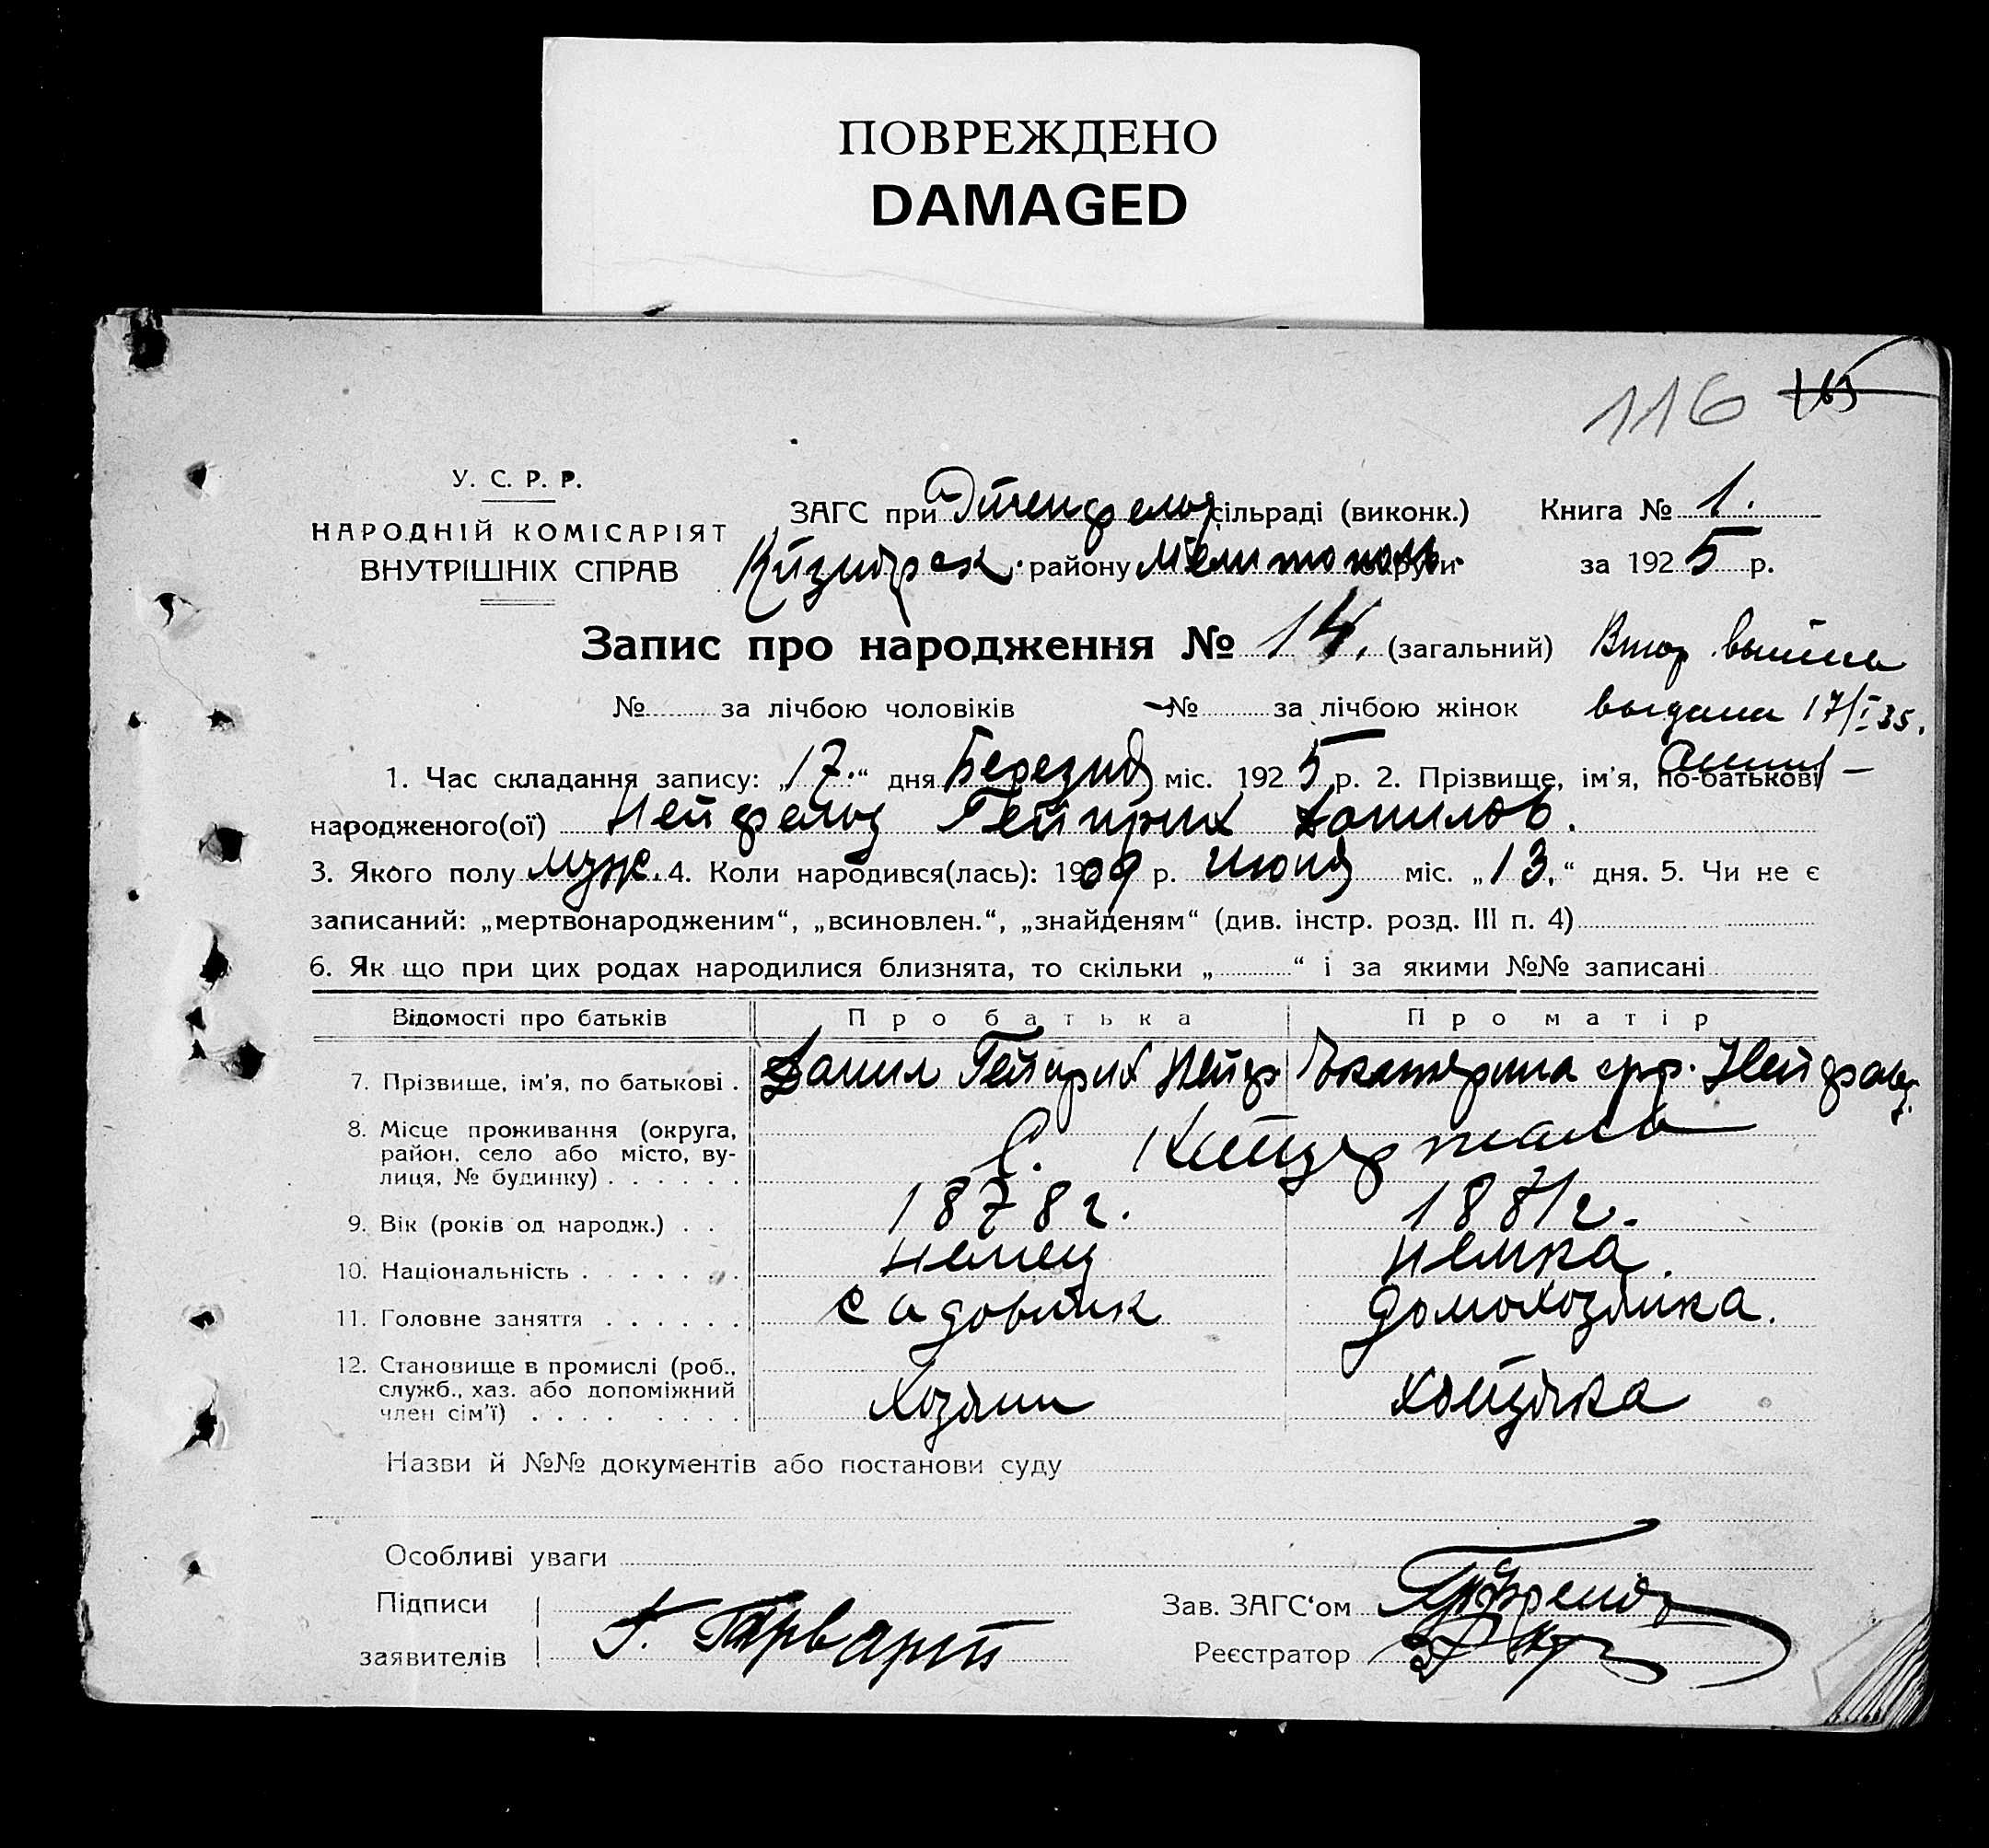 ПОВРЕЖДЕНО
DAMAGED
116 165
У. С. Р. Р.
НАРОДНІЙ КОМІСАРІЯТ
ВНУТРІШНІХ СПРАВ
ЗАГС при сільраді (виконк.) Книга № 1.
району Мелитополь округи за 1925 р.
Запис про народження № 14. (загальний) Втор
№ за лічбою чоловіків № за лічбою жінок выдана 17/I 35.
1. Час складання запису: „17.“ дня Березня міс. 1925 р. 2. Прізвище, ім'я, по-батькові
народженого(ої) Нейфельд Гейнрих Данилов.
3. Якого полу муж. 4. Коли народився(лась): 1909 р. Июня міс. „13.“ дня. 5. Чи не є
записаний: „мертвонародженим“, „всиновлен.“, „знайденям“ (див. інстр. розд. III п. 4)
6. Як що при цих родах народилися близнята, то скільки „ “ і за якими №№ записані
Відомості про батьків Про батька Про матір
7. Прізвище, ім'я, по батькові . Данил Гейнрих Нейф Екатерина Нейфельд
8. Місце проживання (округа,
район, село або місто, ву-
лиця, № будинку) . . . . . . С.
9. Вік (років од народж.) . . 1878 г. 1881 г.
10. Національність . . . . . . . немец немка.
11. Головне заняття . . . . . . садовник домохозяика.
12. Становище в промислі (роб.,
служб., хаз. або допоміжний
член сім'ї) . . . . . . . . . Хозяин хозяйка
Назви й №№ документів або постанови суду
Особливі уваги
Підписи
заявителів Г. Гарварт
Зав. ЗАГС'ом
Реєстратор